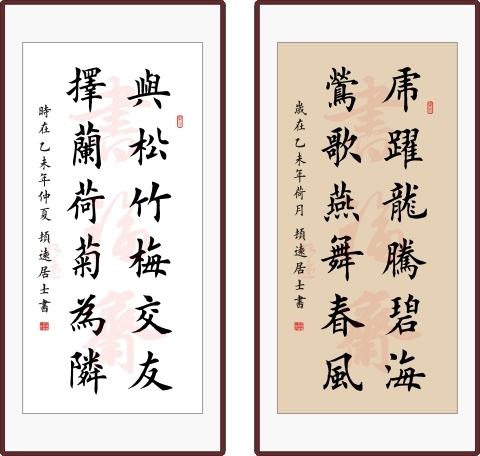 與松竹梅交友
擇蘭荷菊為隣
時在乙未年仲夏 頻遠居士書
虎躍龍騰碧海
鶯歌燕舞春風
歲在乙未年荷月 頻遠居士書